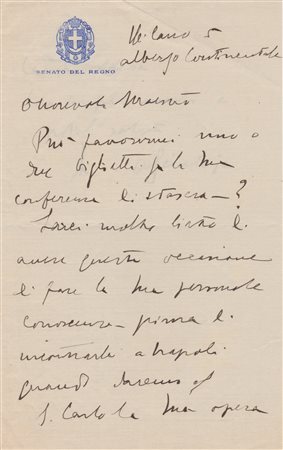 SENATO DEL REGNO
Milano 5
albergo Continentale
Onorevole Maestro
Può favorirmi uno o
due biglietti per la sua
conferenza di stasera–?
Sarei molto lieto di
avere questa occasione
di fare la sua personale
conoscenza– prima di
incontrarla a Napoli
quando daremo al
S. Carlo la sua opera